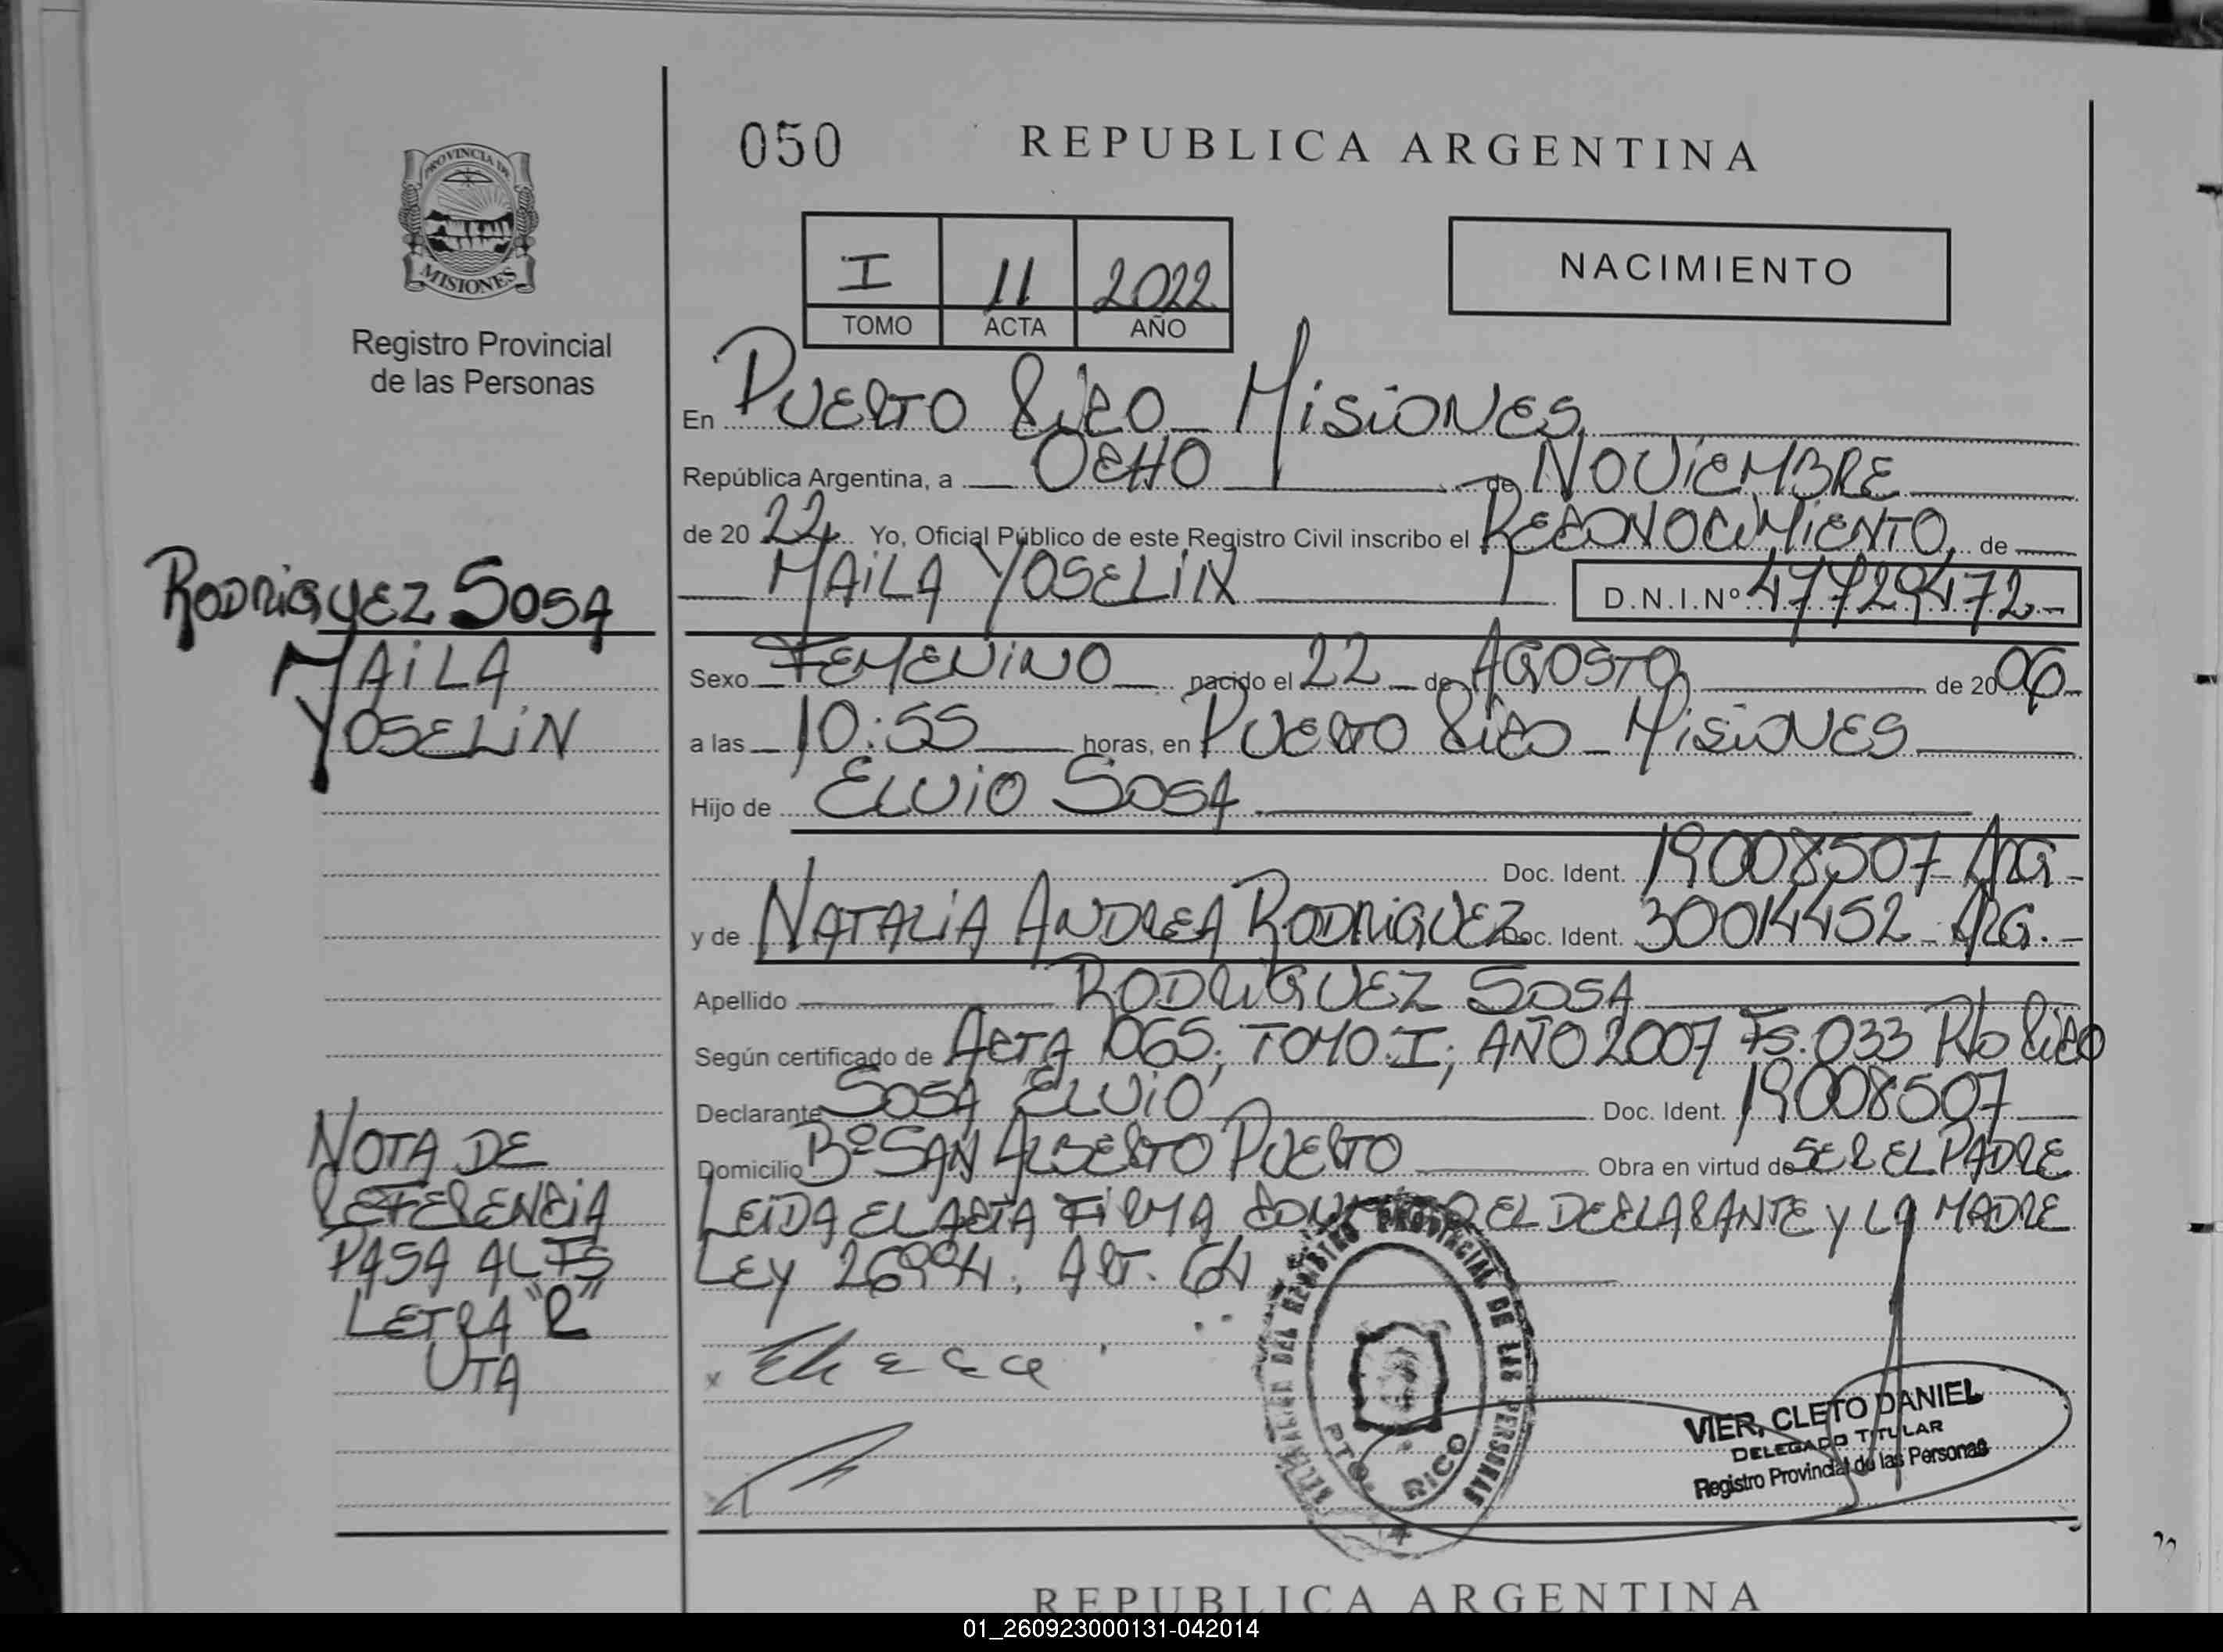 050
REPUBLICA ARGENTINA
PROVINCIA DE
MISIONES
Registro Provincial
de las Personas
I 11 2022
TOMO ACTA AÑO
NACIMIENTO
En PUERTO RICO - MISIONES,
República Argentina, a OCHO de NOVIEMBRE
de 20 22 Yo, Oficial Público de este Registro Civil inscribo el RECONOCIMIENTO, de
MAILA YOSELIN D.N.I.Nº 47729472-
RODRIGUEZ SOSA
MAILA
YOSELIN
Sexo FEMENINO nacido el 22 de AGOSTO de 20 06
a las 10:55 horas, en PUERTO RICO - MISIONES
Hijo de ELVIO SOSA
Doc. Ident. 19008507- ARG-
y de NATALIA ANDREA RODRIGUEZ Doc. Ident. 30014452- ARG.-
Apellido RODRIGUEZ SOSA
Según certificado de ACTA 1065; TOMO:I; AÑO 2007 FS.033 Pto RICO
Declarante SOSA ELVIO Doc. Ident. 19008507
Domicilio Bº SAN ALBERTO PUERTO Obra en virtud de SER EL PADRE
LEIDA EL ACTA FIRMA EL DECLARANTE Y LA MADRE
LEY 26994, ART. 64
NOTA DE
REFERENCIA
PASA AL FS
LETRA "R"
UTA
x
DEL REGISTRO PROVINCIAL DE LAS PERSONAS
PTO. RICO
VIER, CLETO DANIEL
DELEGADO TITULAR
Registro Provincial de las Personas
REPUBLICA ARGENTINA
01_260923000131-042014